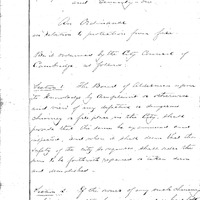 and Seventy-six
An Ordinance
in relation to protection from fire
Be it ordained by the City Council of
Cambridge, as follows.
Section 1. The Board of Aldermen upon
knowledge by complaint or otherwise
and view of any defective or dangerous
chimney or fire place in the City, shall
provide that the same be examined and
and when it shall seem that the
safety of the city so requires shall order the
same to be forthwith repaired or taken down
and demolished.
Section 2. If the owner of any such chimney